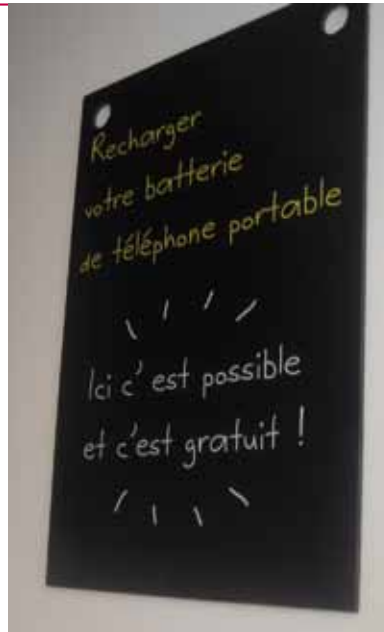 Recharger
votre batterie
de téléphone portable
Ici c'est possible
et c'est gratuit !